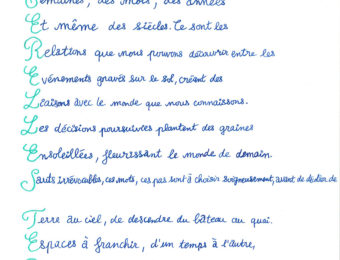 Semaines, des mois, des années
Et même des siècles. Ce sont les
Relations que nous pouvons découvrir entre les
Événements gravés sur le sol, créant des
Liaisons avec le monde que nous connaissons.
Les décisions poursuivies plantent des graines
Ensoleillées, fleurissant le monde de demain.
Sauts irrévocables, ces mots, ces pas sont à choisir soigneusement, avant de
Terre au ciel, de descendre du bâteau au quai.
Espaces à franchir, d'un temps à l'autre,